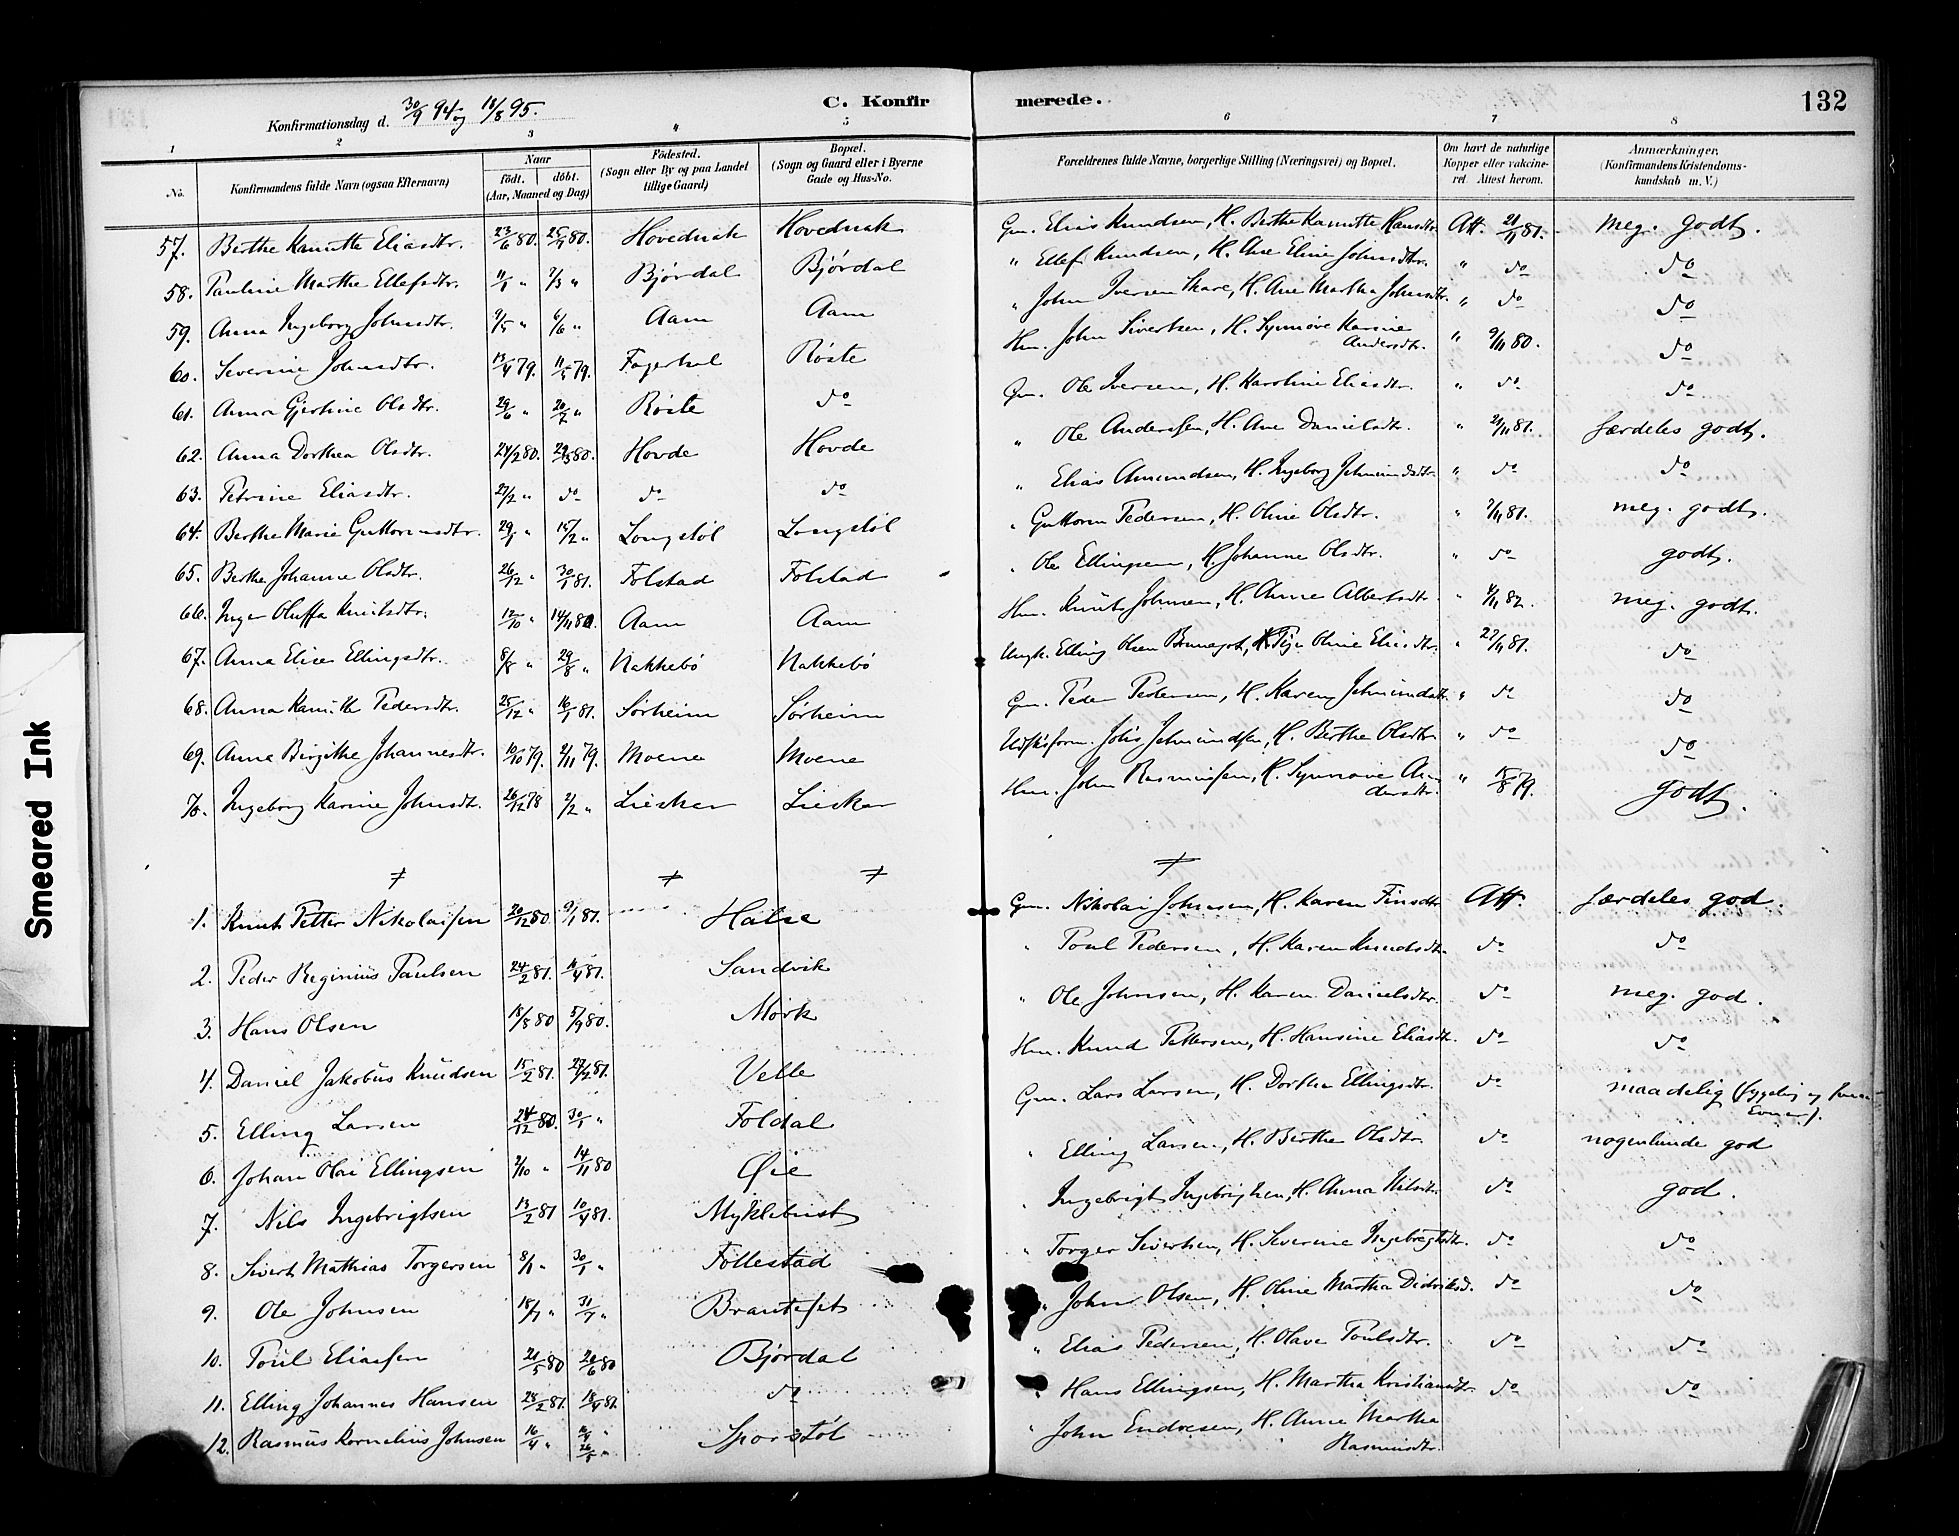 Smeared Ink
Konfirmationsdag d. 30/9 94 og 18/8 95.
C. Konfirmerede.
132
1 2 3 4 5 6 7 8
No. Konfirmandens fulde Navn (ogsaa Efternavn) Naar født. døbt. (Aar, Maaned og Dag) Fødested. (Sogn eller By og paa Landet tillige Gaard) Bopæl. (Sogn og Gaard eller i Byerne Gade og Hus-No. Forældrenes fulde Navne, borgerlige Stilling (Næringsvei) og Bopæl. Om havt de naturlige Kopper eller vakcineret. Attest herom. Anmærkninger, (Konfirmandens Kristendomskundskab m. V.)
57. Berthe Kanutte Eliasdtr. 23/6 80. 25/7 80. Hovednak Hovednak Gm. Elias Knudsen, H. Berthe Kanutte Hansdtr. Att. 21/11 81. Meg. godt.
58. Pauline Marthe Ellefsdtr. 11/1 " 7/3 " Bjørdal Bjørdal " Ellef Knudsen, H. Ane Eline Johnsdtr. " do do
59. Anna Ingeborg Johnsdtr. 9/5 " 6/6 " Aam Aam " John Iversen Skare, H. Ane Martha Johnsdtr. " do do
60. Severine Johnsdtr. 13/4 79. 11/5 79. Fagerhol Røste Hm. John Sivertsen, H. Synnøve Karine Andersdtr. " 9/11 80. do
61. Anna Gjertine Olsdtr. 29/6 " 20/7 " Røste do Gm. Ole Iversen, H. Karoline Eliasdtr. " do do
62. Anna Dorthea Olsdtr. 24/2 80. 29/3 80. Hovde Hovde " Ole Andersen, H. Ane Danielsdtr. " 21/11 81. særdeles godt.
63. Petrine Eliasdtr. 27/2 " do do do " Elias Amundsen, H. Ingeborg Jetmundsdtr. " do do
64. Berthe Marie Guttormsdtr. 29/1 " 15/2 " Longstøl Longstøl " Guttorm Pedersen, H. Oline Olsdtr. " 7/11 81. meg. godt.
65. Berthe Johanne Olsdtr. 26/12 " 30/1 81. Folstad Folstad " Ole Ellingsen, H. Johanne Olsdtr. " do godt.
66. Inger Oluffa Knutsdtr. 12/10 " 14/11 80. Aam Aam Hm. Knut Johnsen, H. Anne Albertsdtr. " 4/11 82. meg. godt.
67. Anna Elise Ellingsdtr. 8/8 " 29/8 " Nakkebø Nakkebø Ungk. Elling Olsen Brunegot, Pige Oline Eliasdtr. " 27/11 81. do
68. Anna Kanutte Pedersdtr. 25/12 " 16/1 81. Sørheim Sørheim Gm. Peder Pedersen, H. Karen Jetmundsdtr. " do do
69. Anne Birgithe Johannesdtr. 10/10 79. 2/11 79. Moene Moene Johs Jetmundsen, H. Berthe Olsdtr. " do do
70. Ingeborg Karine Johnsdtr. 26/12 78 2/2 " Liesker Liesker Hm. John Rasmussen, H. Synnøve Andersdtr. " 15/8 79. godt.
1. Knut Petter Nikolaisen 20/12 80. 9/1 81. Halse Gm. Nikolai Johnsen, H. Karen Finsdtr Att. særdeles god.
2. Peder Reginius Paulsen 24/2 81. 18/4 81. Sandvik " Poul Pedersen, H. Karen Knudsdtr. do do
3. Hans Olsen 18/8 80 5/9 80. Mork " Ole Johnsen, H. Karen Danielsdtr. do meg. god.
4. Daniel Jakobus Knudsen 15/2 81. 27/2 81. Velle Hm. Knud Pettersen, H. Hansine Eliasdtr. do do
5. Elling Larsen 24/12 80. 30/1 " Foldal Gm. Lars Larsen, H. Dorthea Ellingsdtr. do maadelig (sygelig og smaa Evner).
6. Johan Olai Ellingsen 2/10 " 14/11 80 Øie " Elling Larsen, H. Berthe Olsdtr. do nogenlunde god
7. Nils Ingebrigtsen 13/2 81 10/4 81. Myklebust " Ingebrigt Ingebrigtsen, H. Anna Nilsdtr. do god.
8. Sivert Mathias Torgersen 8/1 " 30/1 " Follestad " Torger Sivertsen, H. Severine Ingebrigtsdtr. do do
9. Ole Johnsen 18/7 " 31/7 " Brauteset " John Olsen, H. Oline Martha Didriksd. do do
10. Poul Eliassen 21/5 80 20/6 80 Bjørdal " Elias Pedersen, H. Olave Poulsdtr. do do
11. Elling Johannes Hansen 28/2 81. 18/4 81 do " Hans Ellingsen, H. Martha Kristiansdtr. do do
12. Rasmus Kornelius Johnsen 16/4 " 16/4 " 26/5 " Sporstøl " John Endresen, H. Anne Martha Rasmusdtr.